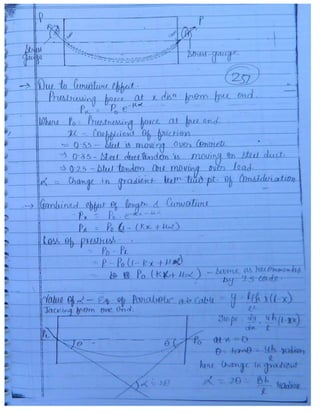 P
P
Strain gauge
Strain gauge
237
→ Due to Curvature effect.
Prestressing force at x distn from free end.
Px = Po e-μα
Where Po = Prestressing force at free end.
= Coefficient of friction
= 0.55 – steel is moving over Concrete
→ 0.35 – Steel duct tendon is moving on steel duct
→ 0.25 – Steel tendon are moving over lead
α = Change in gradient betn two pt. of Consideration
→ Combined effect of length & Curvature
Px = Po
Px = Po (1 - (Kx + μα)
Loss of prestress
= Po - Px
= P - Po (1 - Kx + μα)
= Po (Kx + μα) – Same as recommended
by I.S code.
Value of α – Eq of Parabolic Cable – y = 4h x(l-x)
Jacking from one end.
Slope = dy/dx = 4h (l-2x)
Po
θ
θ
Po
at x = 0
θ = tanθ = 4h/l radian
here Change in gradient
α = 2θ
α = 2θ = 8h/l radian